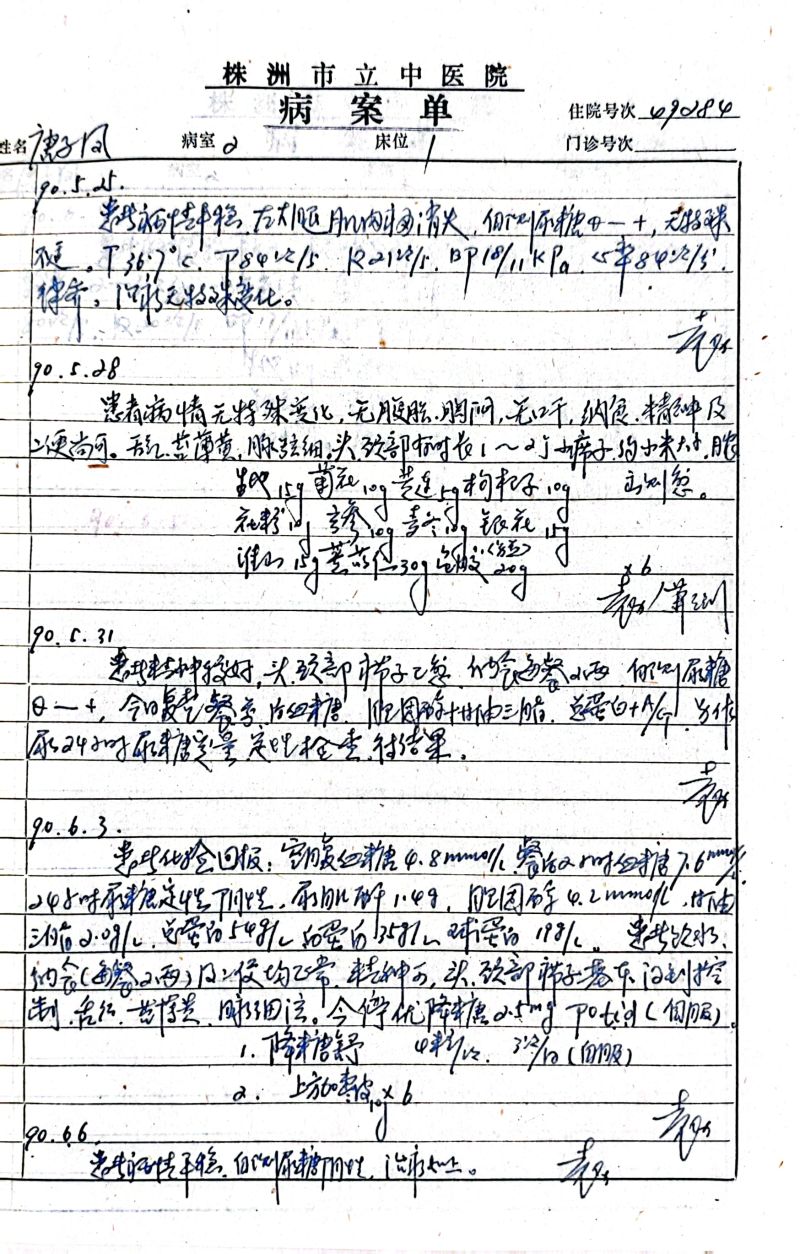 株洲市立中医院
病案单
住院号次 49284
姓名 唐子凤 病室 2 床位 1 门诊号次
90.5.25.
患者病情平稳,左大腿肌肉 消失,自测尿糖⊖—+,无特殊
不适。T 36.7°C. P 84次/分 R 21次/分. BP 18/11 KPa 心率84次/分.
律齐,治疗无特殊变化。
袁
90.5.28
患者病情无特殊变化,无腹胀.胸闷,无口干,纳食.精神及
二便尚可。舌红.苔薄黄,脉弦细。头颈部有时长1~2个小疖子,约小米大小,
生地15g 菊花10g 黄连5g 枸杞子10g
花粉10g 玄参10g 麦冬10g 银花15g
淮山15g 薏苡仁30g 20g
×6
袁 /
90.5.31
患者精神较好,头.颈部疖子已愈.纳食每餐2两 自测尿糖
⊖—+,今日复查 餐后血糖.胆固醇+甘油三脂.总蛋白+A/G,另作
尿24小时尿糖定量定性检查,待结果。
袁
90.6.3.
患者化验回报:空腹血糖4.8mmol/L.餐后2小时血糖7.6mmol/L
24小时尿糖定性阴性.尿肌酐1.4g,胆固醇4.2mmol/L.甘油
三脂2.0g/L.总蛋白54g/L 白蛋白35g/L 球蛋白19g/L。患者饮水、
纳食(每餐2两)及二便均正常.精神可,头.颈部疖子基本得到控
制.舌红.苔薄黄.脉细 。今停优降糖2.5mg po tid(自服)
1. 降糖舒 4粒/次. 3次/日(自服)
2. 上方加 10g ×6
袁
90.6.6
患者病情平稳,自测尿糖阴性,治疗如上。
袁